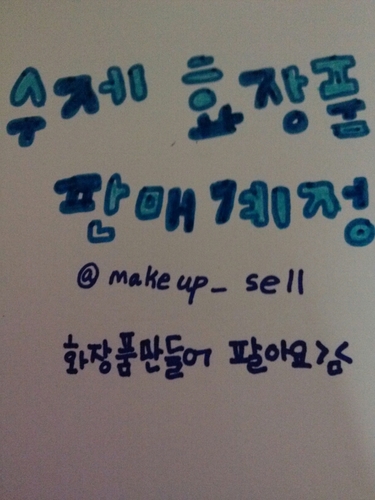 수제 화장품
판매계정
@makeup_sell
화장품만들어 팔아요>.<